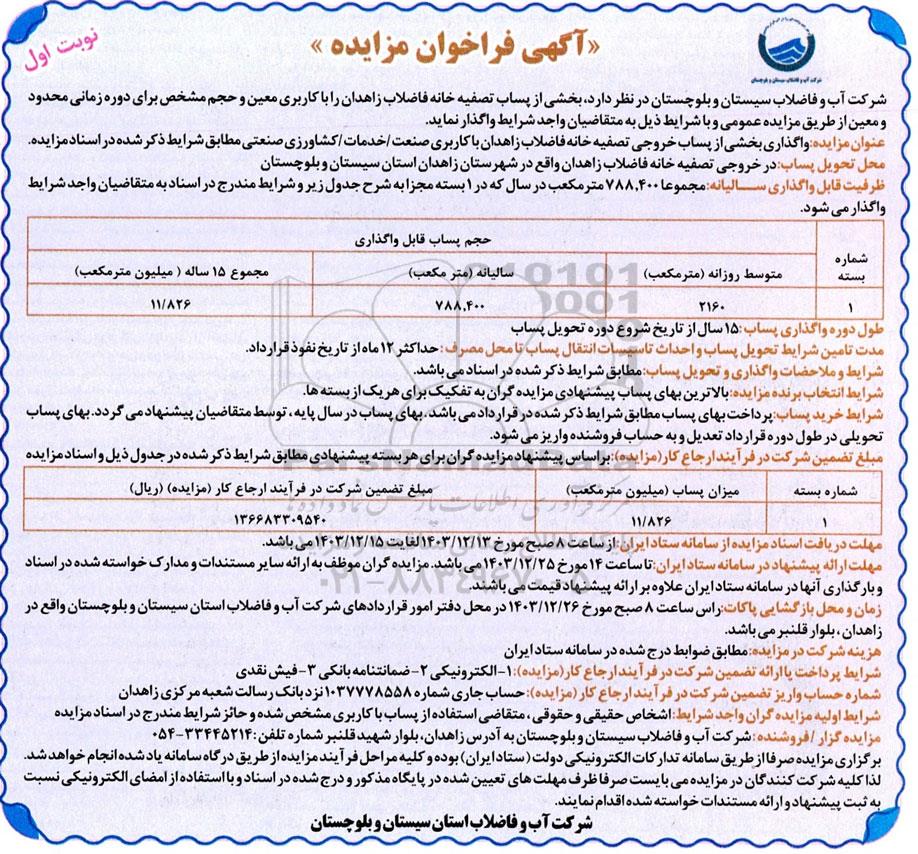 نوبت اول
«آگهی فراخوان مزایده»
شرکت آب و فاضلاب سیستان و بلوچستان
شرکت آب و فاضلاب سیستان و بلوچستان در نظر دارد، بخشی از پساب تصفیه خانه فاضلاب زاهدان را با کاربری معین و حجم مشخص برای دوره زمانی محدود
و معین از طریق مزایده عمومی و با شرایط ذیل به متقاضیان واجد شرایط واگذار نماید.
عنوان مزایده: واگذاری بخشی از پساب خروجی تصفیه خانه فاضلاب زاهدان با کاربری صنعت /خدمات /کشاورزی صنعتی مطابق شرایط ذکر شده در اسناد مزایده.
محل تحویل پساب: در خروجی تصفیه خانه فاضلاب زاهدان واقع در شهرستان زاهدان استان سیستان و بلوچستان
ظرفیت قابل واگذاری سالیانه: مجموعا ۷۸۸,۴۰۰ مترمکعب در سال که در ۱ بسته مجزا به شرح جدول زیر و شرایط مندرج در اسناد به متقاضیان واجد شرایط
واگذار می شود.
شماره بسته | حجم پساب قابل واگذاری
متوسط روزانه (مترمکعب) | سالیانه (متر مکعب) | مجموع ۱۵ ساله ( میلیون مترمکعب)
۱ | ۲۱۶۰ | ۷۸۸,۴۰۰ | ۱۱/۸۲۶
طول دوره واگذاری پساب: ۱۵ سال از تاریخ شروع دوره تحویل پساب
مدت تامین شرایط تحویل پساب و احداث تاسیسات انتقال پساب تا محل مصرف: حداکثر ۱۲ ماه از تاریخ نفوذ قرارداد.
شرایط و ملاحضات واگذاری و تحویل پساب: مطابق شرایط ذکر شده در اسناد می باشد.
شرایط انتخاب برنده مزایده: بالاترین بهای پساب پیشنهادی مزایده گران به تفکیک برای هر یک از بسته ها.
شرایط خرید پساب: پرداخت بهای پساب مطابق شرایط ذکر شده در قرارداد می باشد . بهای پساب در سال پایه ، توسط متقاضیان پیشنهاد می گردد. بهای پساب
تحویلی در طول دوره قرارداد تعدیل و به حساب فروشنده واریز می شود.
مبلغ تضمین شرکت در فرآیند ارجاع کار (مزایده): بر اساس پیشنهاد مزایده گران برای هر بسته پیشنهادی مطابق شرایط ذکر شده در جدول ذیل و اسناد مزایده
شماره بسته | میزان پساب (میلیون مترمکعب) | مبلغ تضمین شرکت در فرآیند ارجاع کار (مزایده) (ریال)
۱ | ۱۱/۸۲۶ | ۱۳۶۶۸۳۳۰۹۵۴۰
مهلت دریافت اسناد مزایده از سامانه ستاد ایران: از ساعت ۸ صبح مورخ ۱۴۰۳/۱۲/۱۳ لغایت ۱۴۰۳/۱۲/۱۵ می باشد.
مهلت ارائه پیشنهاد در سامانه ستاد ایران: تا ساعت ۱۴ مورخ ۱۴۰۳/۱۲/۲۵ می باشد. مزایده گران موظف به ارائه سایر مستندات و مدارک خواسته شده در اسناد
و بارگذاری آنها در سامانه ستاد ایران علاوه بر ارائه پیشنهاد قیمت می باشند.
زمان و محل بازگشایی پاکات: راس ساعت ۸ صبح مورخ ۱۴۰۳/۱۲/۲۶ در محل دفتر امور قراردادهای شرکت آب و فاضلاب استان سیستان و بلوچستان واقع در
زاهدان ، بلوار قلنبر می باشد.
هزینه شرکت در مزایده: مطابق ضوابط درج شده در سامانه ستاد ایران
شرایط پرداخت یا ارائه تضمین شرکت در فرآیند ارجاع کار (مزایده): ۱-الکترونیکی ۲-ضمانتنامه بانکی ۳-فیش نقدی
شماره حساب واریز تضمین شرکت در فرآیند ارجاع کار (مزایده): حساب جاری شماره ۱۰۳۷۷۷۸۵۵۸ نزد بانک رسالت شعبه مرکزی زاهدان
شرایط اولیه مزایده گران واجد شرایط: اشخاص حقیقی و حقوقی ، متقاضی استفاده از پساب با کاربری مشخص شده و حائز شرایط مندرج در اسناد مزایده
مزایده گزار /فروشنده: شرکت آب و فاضلاب سیستان و بلوچستان به آدرس زاهدان، بلوار شهید قلنبر شماره تلفن: ۳۳۴۴۵۲۱۴-۰۵۴
برگزاری مزایده صرفا از طریق سامانه تدارکات الکترونیکی دولت (ستاد ایران) بوده و کلیه مراحل فرآیند مزایده از طریق درگاه سامانه یاد شده انجام خواهد شد.
لذا کلیه شرکت کنندگان در مزایده می بایست صرفا ظرف مهلت های تعیین شده در پایگاه مذکور و درج شده در اسناد و با استفاده از امضای الکترونیکی نسبت
به ثبت پیشنهاد و ارائه مستندات خواسته شده اقدام نمایند.
شرکت آب و فاضلاب استان سیستان و بلوچستان